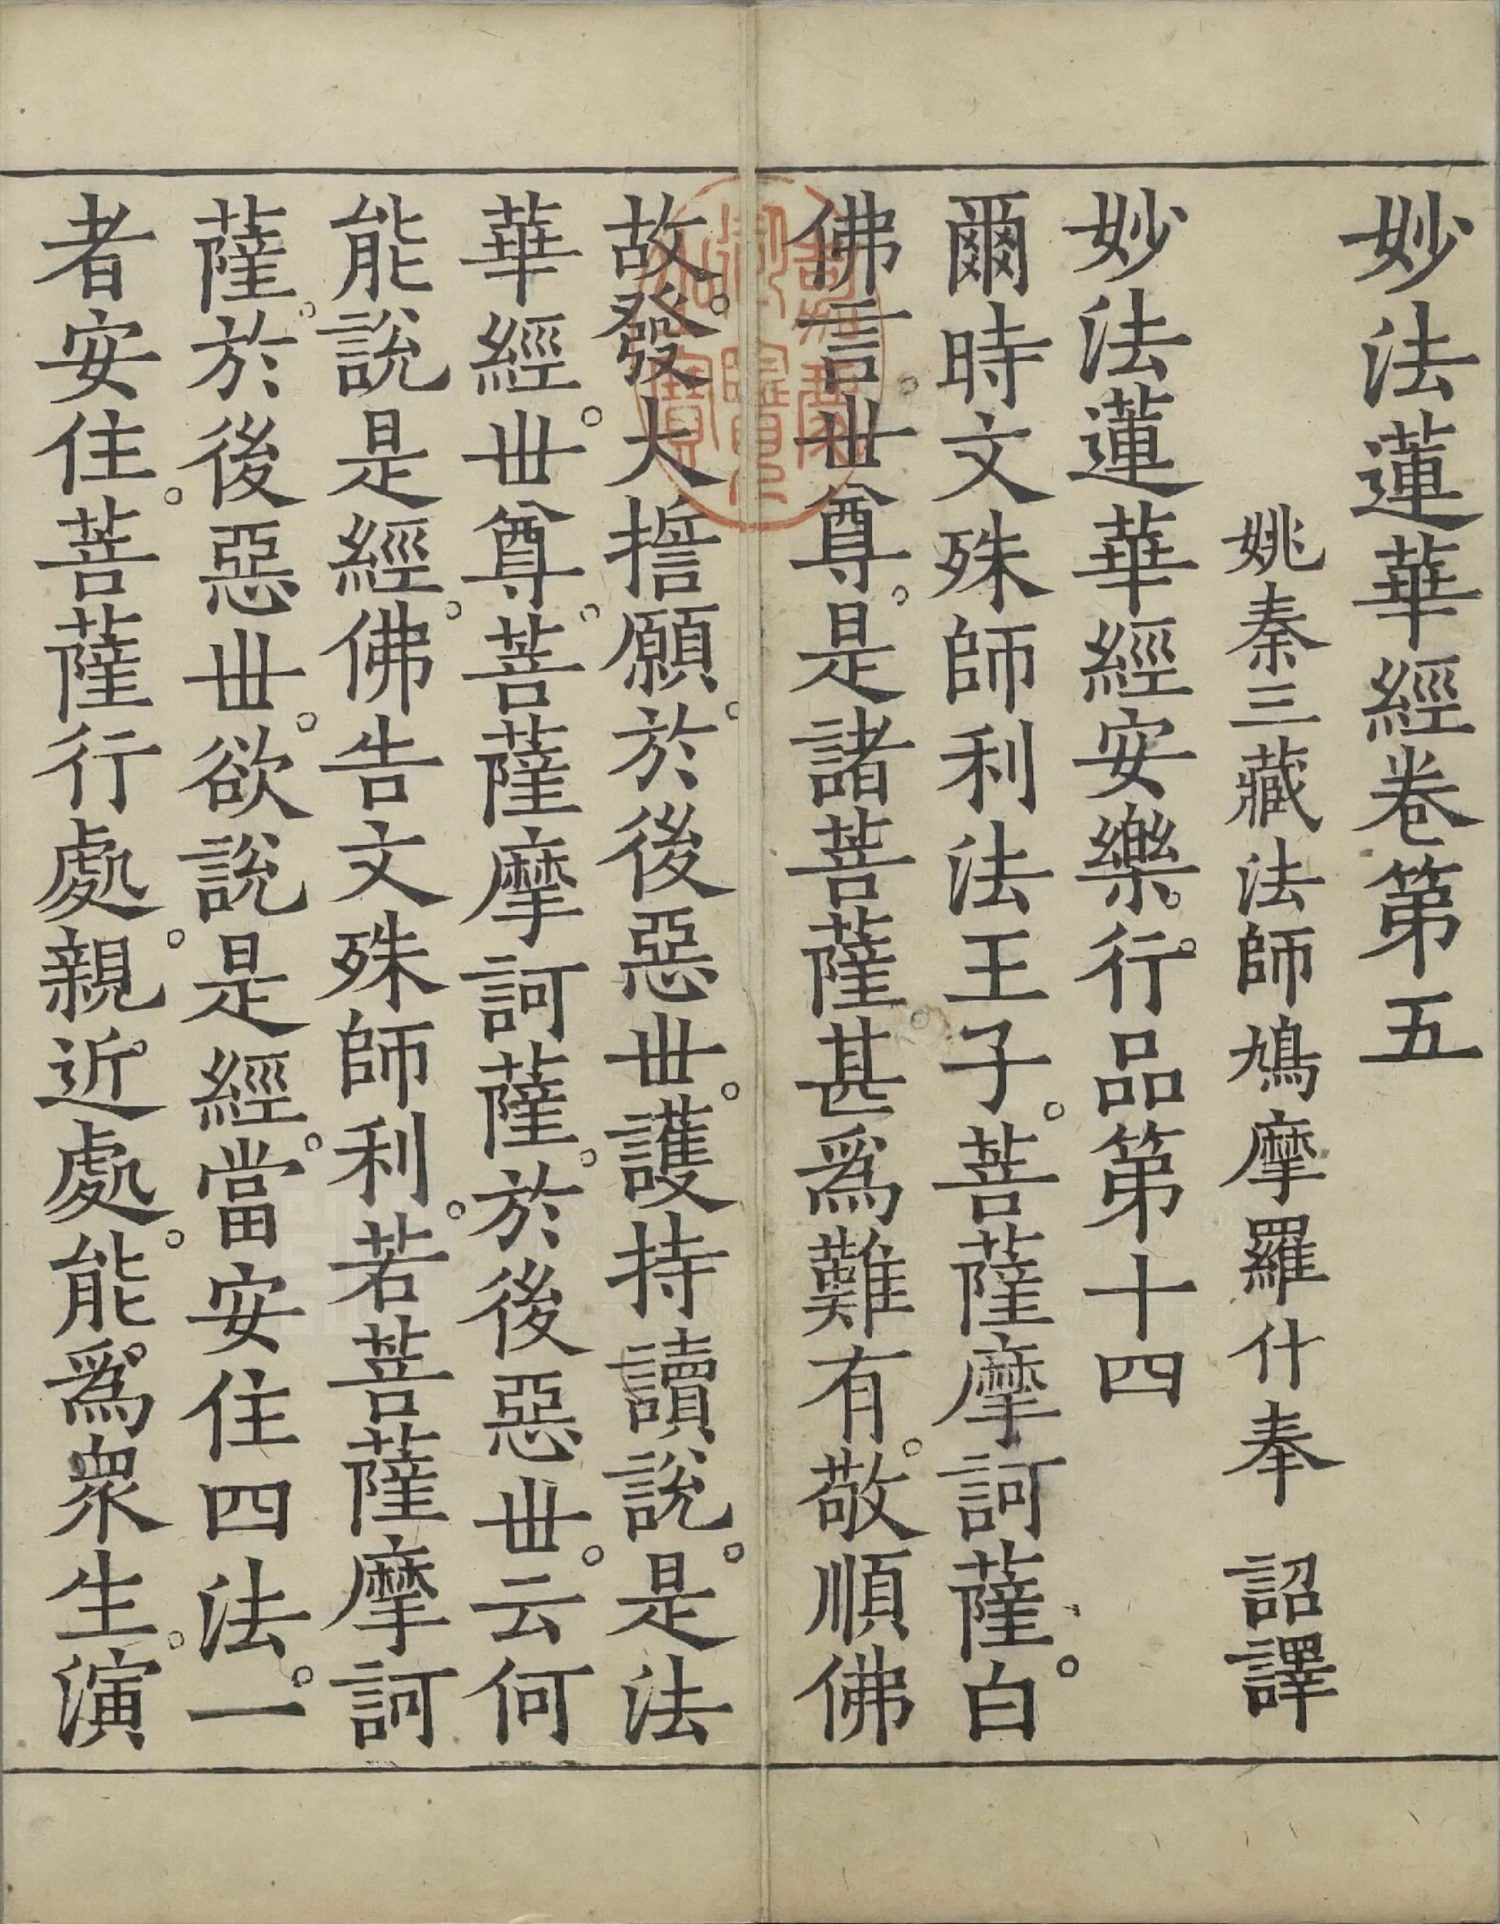 妙法蓮華經卷第五
姚秦三藏法師鳩摩羅什奉　詔譯
妙法蓮華經安樂。行。品第十四
爾時文殊師利法王子。菩薩摩訶薩。白
佛言。世尊。是諸菩薩。甚為難有。敬順佛
故。發大擔願。於後惡世。護持讀說。是法
華經。世尊。菩薩摩訶薩。於後惡世。云何
能說是經。佛告文殊師利。若菩薩摩訶
薩。於後惡世。欲說是經。當安住四法。一
者安住。菩薩行處。親近。處。能。為。眾生。演